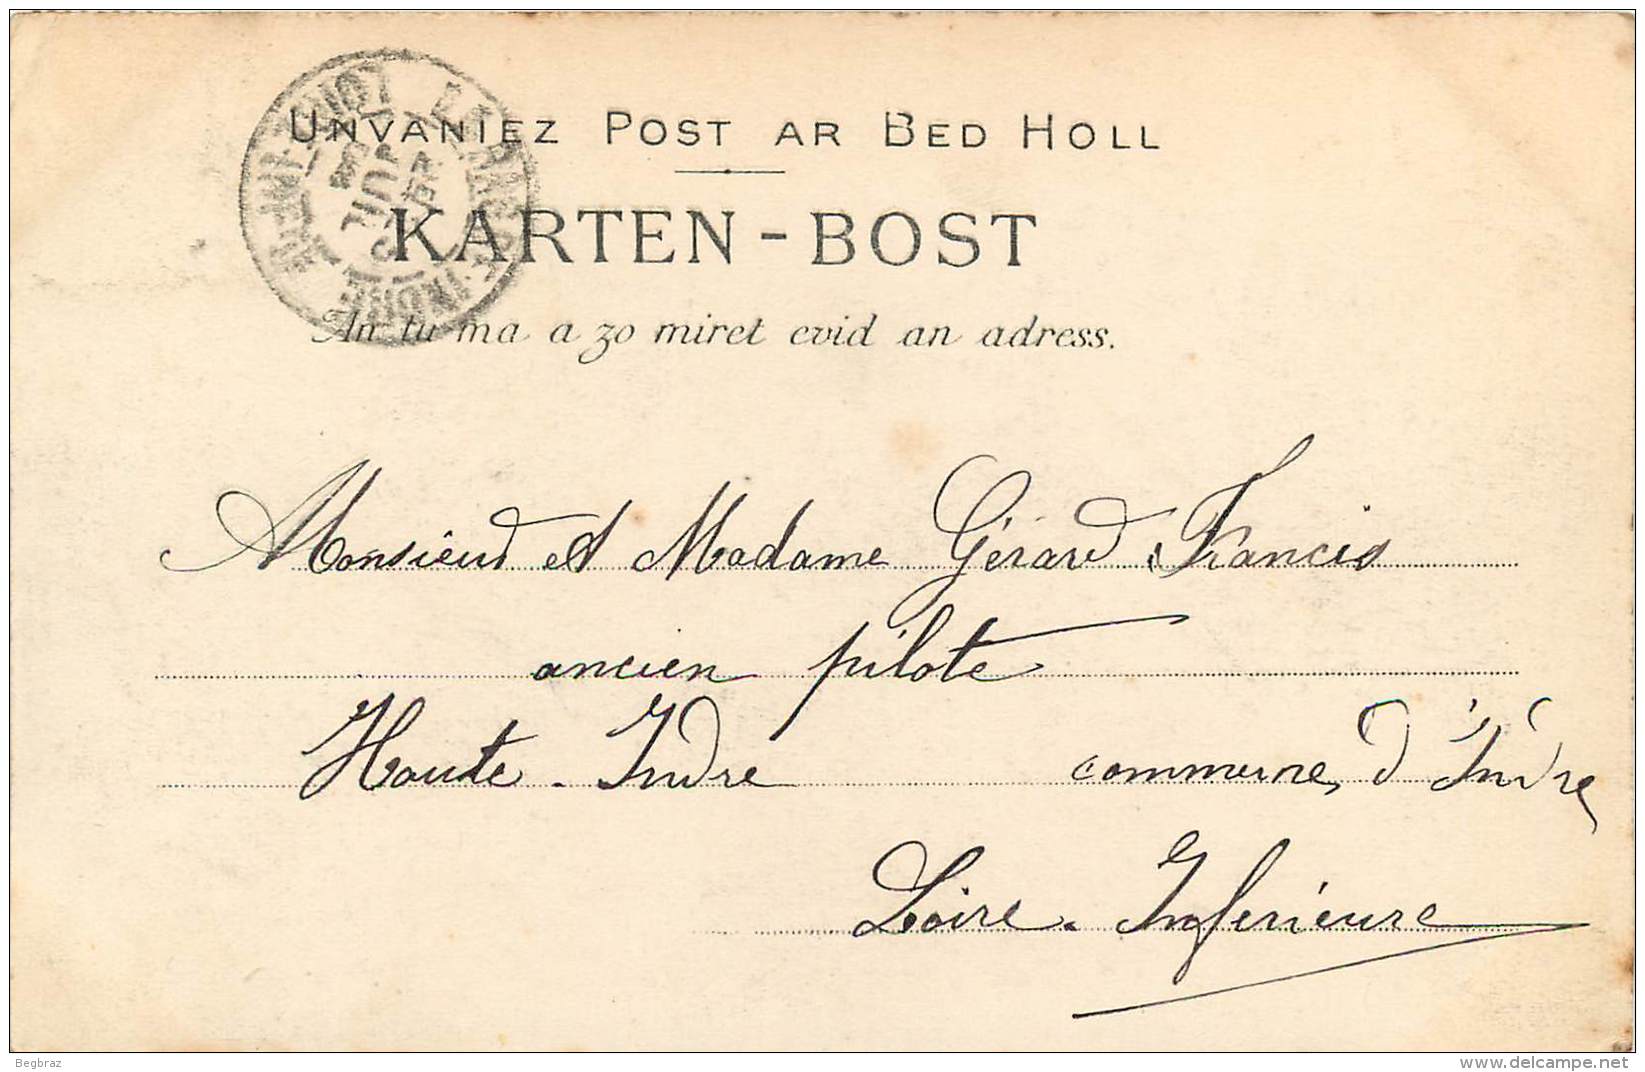 UNVANIEZ POST AR BED HOLL
KARTEN-BOST
An tu ma a zo miret evid an adress.
Monsieur et Madame Gérard Francis
ancien pilote
Haute-Indre commune d'Indre
Loire-Inférieure
Begbraz
www.delcampe.net